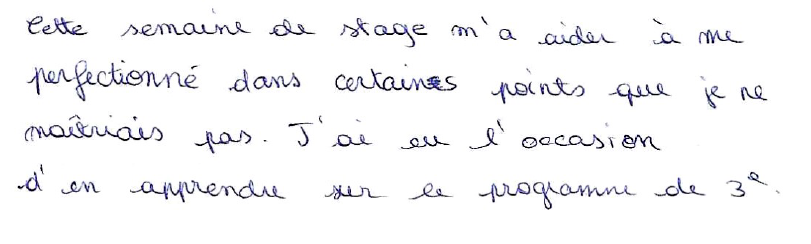 Cette semaine de stage m'a aider à me
perfectionné dans certains points que je ne
maîtriais pas. J'ai eu l'occasion
d'en apprendre sur le programme de 3e.